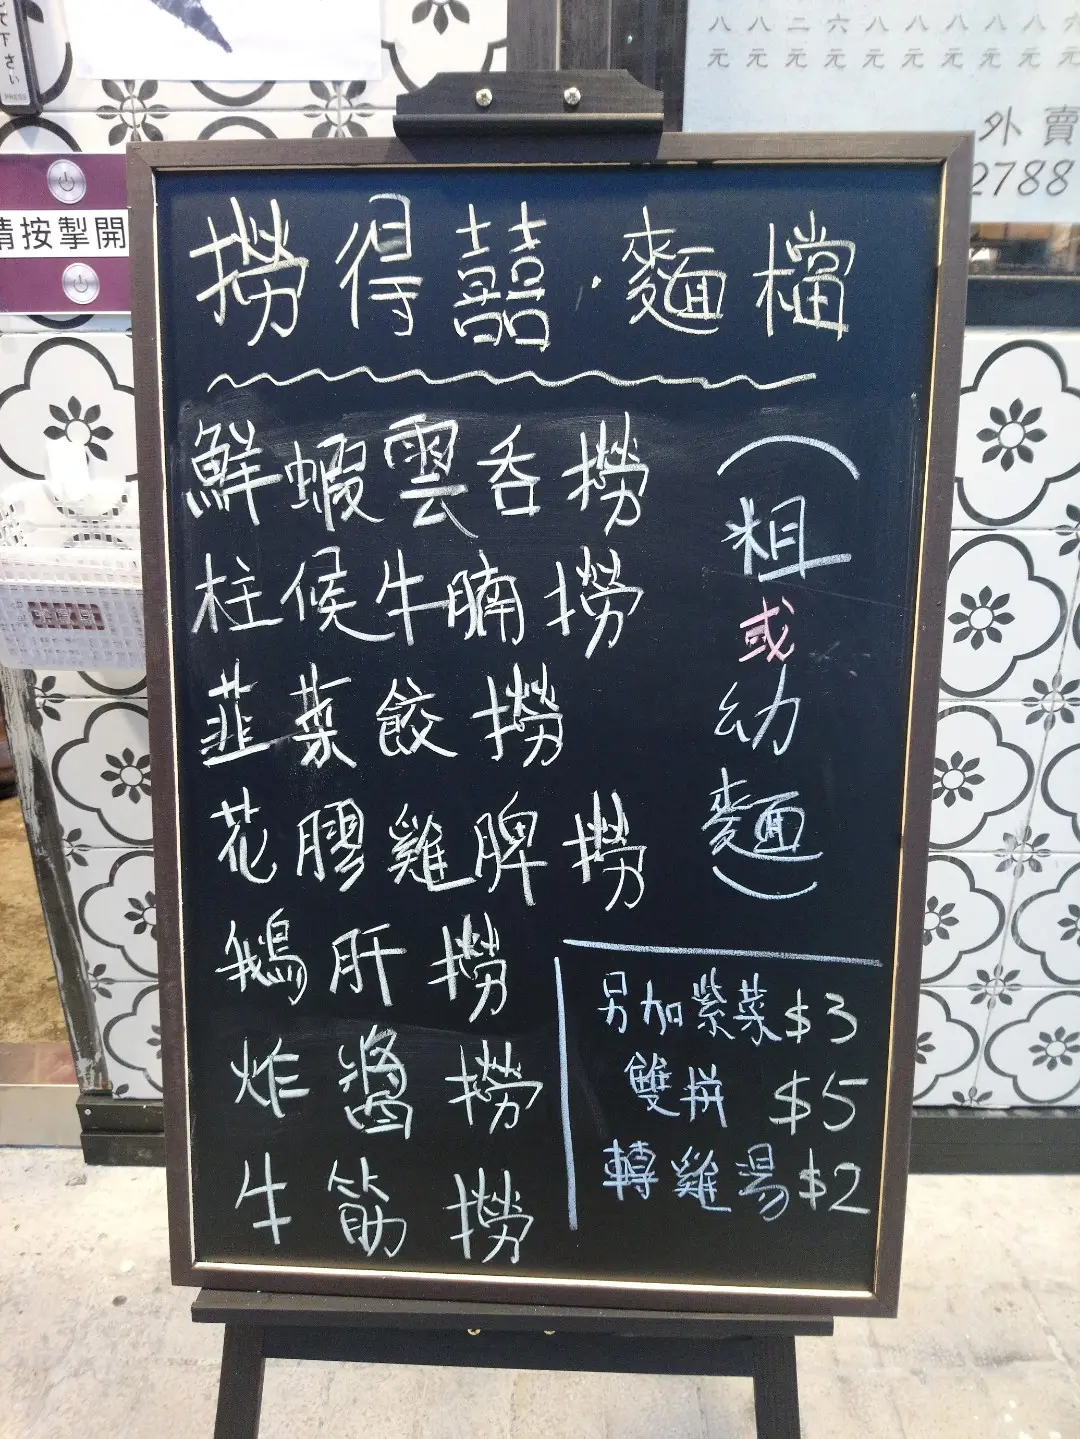 下さい
PRESS
請按掣開
八 八 二 六 八 八 八 八 八 六
元 元 元 元 元 元 元 元 元 元
外賣
2788
撈得囍·麵檔
鮮蝦雲吞撈
柱侯牛腩撈
韮菜餃撈
花膠雞脾撈
鵝肝撈
炸醬撈
牛筋撈
(粗或幼麵)
另加紫菜$3
雙拼 $5
轉雞湯$2